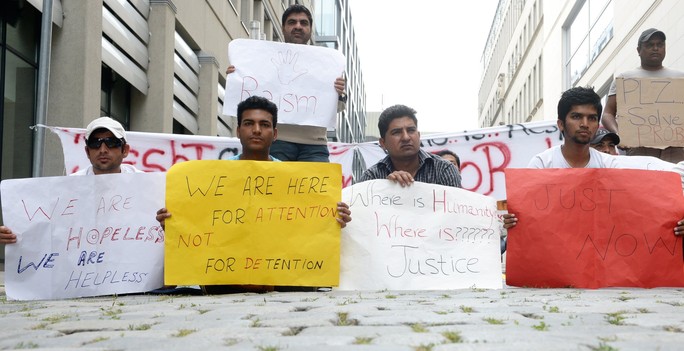 Rasism
PLZ
Solve
PROB
WE ARE
HOPELESS
WE ARE
HELPLESS
WE ARE HERE
FOR ATTENTION
NOT
FOR DETENTION
Where is Humanity
Where is??????
Justice
JUST
NOW